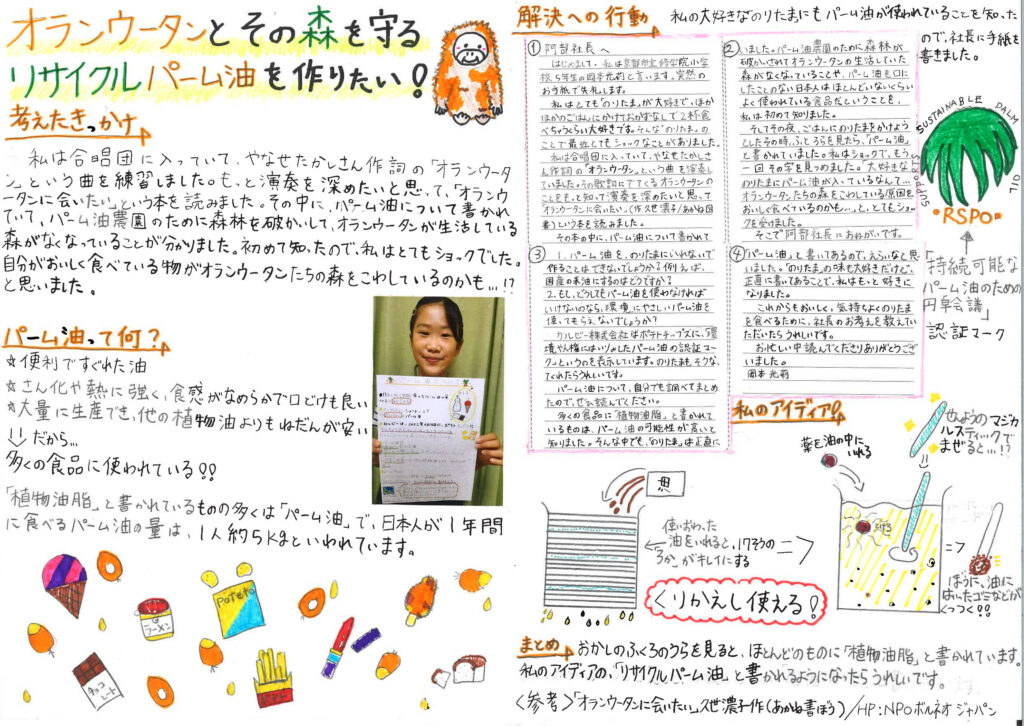 オランウータンとその森を守る
リサイクルパーム油を作りたい!
考えたきっかけ
私は合唱団に入っていて、やなせたかしさん作詞の「オランウータ
ン」という曲を練習しました。もっと演奏を深めたいと思って、「オランウ
ータンに会いたい」という本を読みました。その中に、パーム油について書かれ
ていて、パーム油農園のために森林を破かいして、オランウータンが生活している
森がなくなっていることが分かりました。初めて知ったので、私はとてもショックでした。
自分がおいしく食べている物がオランウータンたちの森をこわしているのかも…!?
と思いました。
パーム油って何?
☆便利ですぐれた油
☆さん化や熱に強く、食感がなめらかで口どけも良い
☆大量に生産でき、他の植物油よりもねだんが安い
⇓だから…
多くの食品に使われている!!
「植物油脂」と書かれているものの多くは「パーム油」で、日本人が1年間
に食べるパーム油の量は、1人約5kgといわれています。
ラーメン
poteto
チョコレート
解決への行動
私の大好きなのりたまにもパーム油が使われていることを知った
ので、社長に手紙を
書きました。
①阿部社長へ
はじめまして。私は京都市立修学院小学
校5年生の岡本光莉と言います。突然の
お手紙で失礼します。
私はとても「のりたま」が大好きで、ほか
ほかのごはんにかけておかずなしで2杯食
べちゃうくらい大好きです。そんな「のりたま」の
ことで最近とてもショックなことがありました。
私は合唱団に入っていて、やなせたかし
さん作詞の「オランウータン」という曲を演奏し
ていました。その歌詞にでてくるオランウータンの
ことをもっと知って演奏を深めたいと思って
オランウータンに会いたい(作久世濃子/あかね図
書)という本を読みました。
その本の中に、パーム油について書かれて
②いました。パーム油農園のために森林が
破かいされてオランウータンの生活していた
森がなくなっていることや、パーム油を口に
したことのない日本人はほとんどいないくらい
よく使われている食品だということを、
私は初めて知りました。
そしてその夜、ごはんにのりたまをかけよう
としたその時、ふとうらを見たら、「パーム油」
と書かれていました。私はショックで、もう
一回その字を見つめました。「大好きな
のりたまにパーム油が入っているなんて…
オランウータンたちの森をこわしている原因を
おいしく食べているのかも…」と、とてもショッ
クを受けました。
そこで阿部社長におねがいです。
③1.パーム油を、のりたまにいれないで
作ることはできないでしょうか?例えば、
国産の米油にするのはどうですか?
2.もし、どうしてもパーム油を使わなければ
いけないのなら、環境にやさしいパーム油を
使ってもらえないでしょうか?
カルビー株式会社はポテトチップスに、「環
境や人権にはいりょしたパーム油の認証マー
ク」というのを表示しています。のりたまも、そうな
ってくれたらうれしいです。
パーム油について、自分でも調べてまとめ
たので、ぜひ読んでください。
多くの食品に「植物油脂」と書かれて
いるものは、パーム油の可能性が高いと
知りました。そんな中でも、「のりたま」は正直に
④「パーム油」と書いてあるので、えらいなと思
いました。「のりたま」の味も大好きだけど、
正直に書いてあることで、私はもっと好きに
なりました。
これからもおいしく、気持ちよくのりたま
を食べるために、社長のお考えを教えてい
ただいたらうれしいです。
お忙しい中読んでくださりありがとうござ
いました。
岡本光莉
SUSTAINABLE PALM OIL
SUPPORTS
RSPO
「持続可能な
パーム油のための
円卓会議」
認証マーク
私のアイディア!
使いおわった
油をいれると、17そうの
ろかがキレイにする
薬を油の中に
いれる
せんようのマジカ
ルスティックで
まぜると…!?
ぼうに、油に
はいたゴミなどが
くっつく!!
くりかえし使える!
まとめ
おかしのふくろのうらを見ると、ほとんどのものに「植物油脂」と書かれています。
私のアイディアの、「リサイクルパーム油」と書かれるようになったらうれしいです。
<参考>「オランウータンに会いたい」久世濃子作(あかね書ぼう)/HP:NPOボルネオジャパン